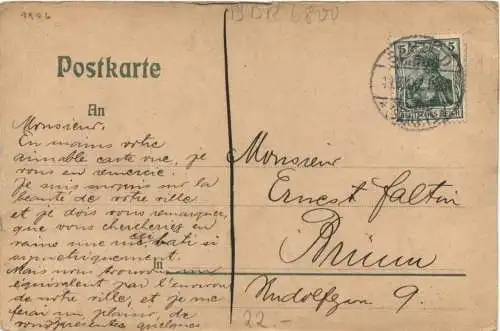 1906
BBPL 6800
Postkarte
5 5
DEUTSCHES REICH
An
Monsieur.
En mains votre
aimable carte vue, je
vous en remercie.
Je suis surpris sur la
beauté de votre ville
et je dois vous remarquer,
que vous chercheriez en
vains une si bati si
symetriquement.
Mais nous trouvons un
equivalent par l'environ
de notre ville, et je me
ferai un plaisir, de
vous presenter quelques
Monsieur
Ernest Faltin
Brünn
In
Rudolfgasse 9.
22.-